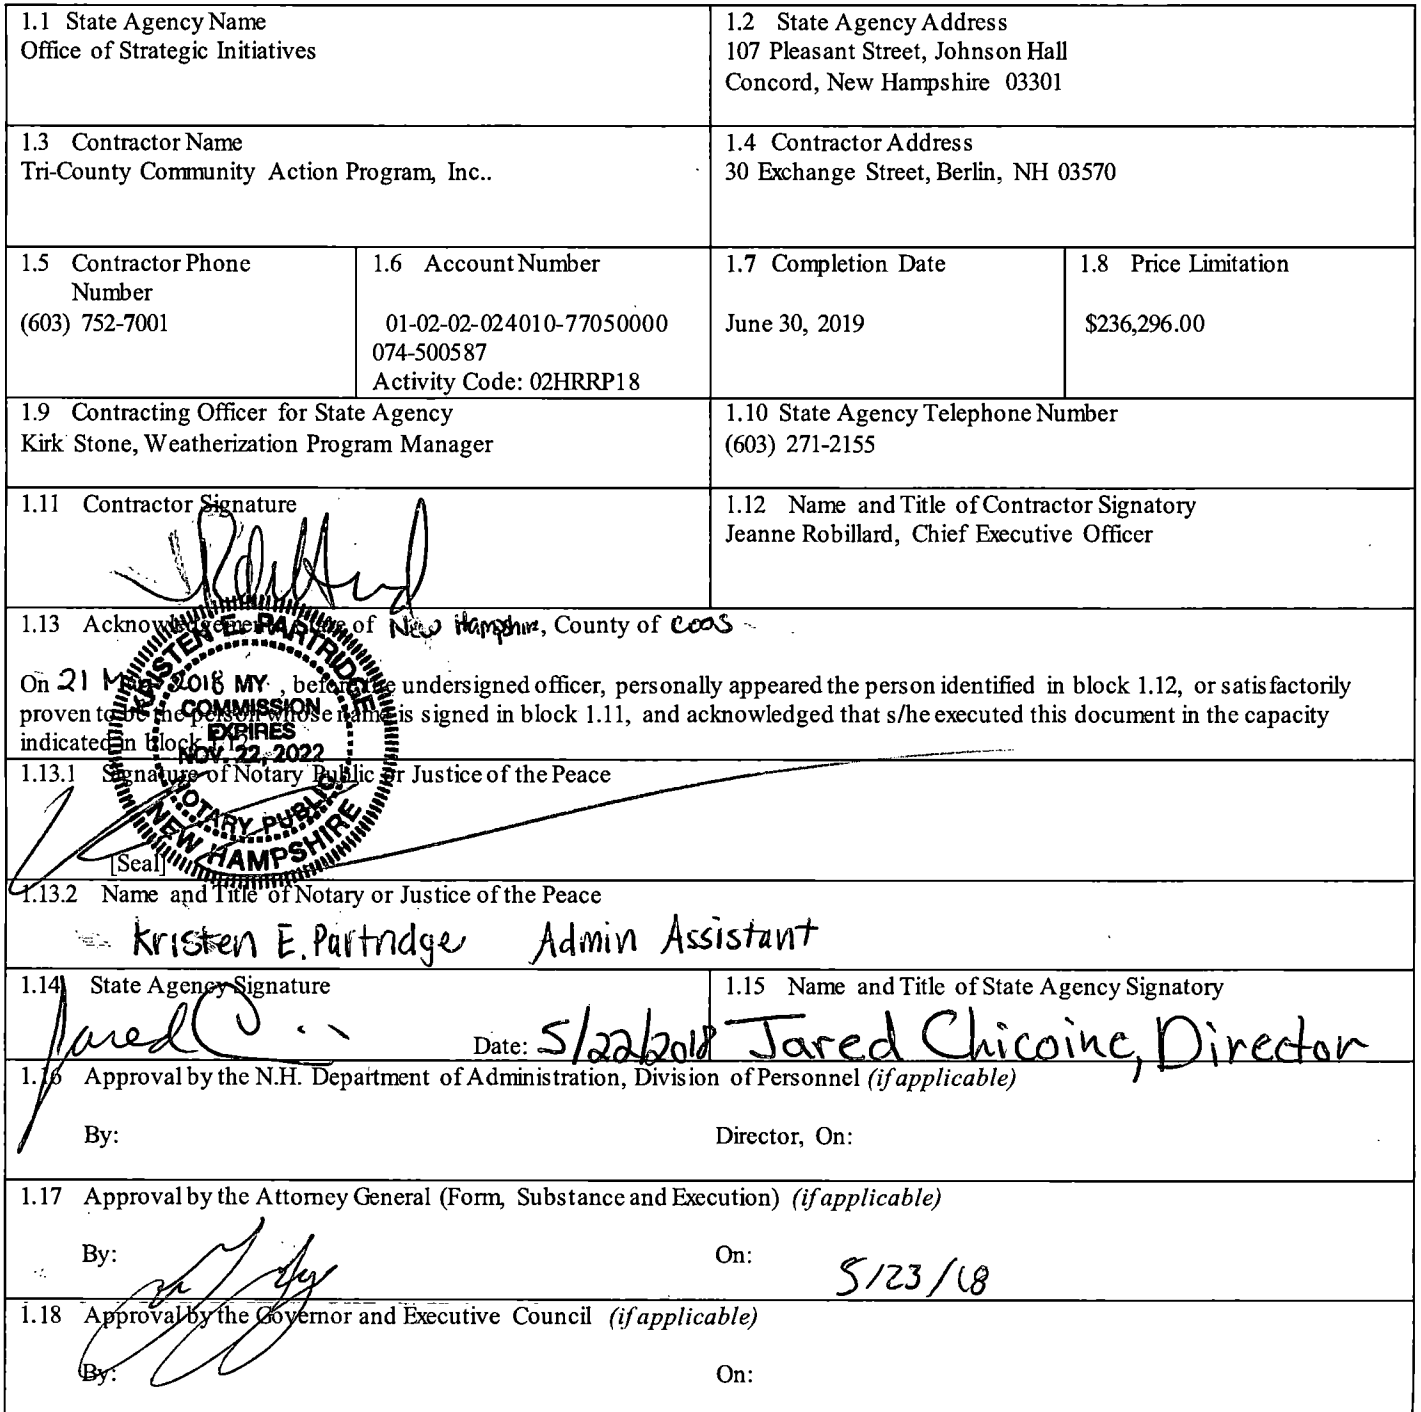 1.1 State Agency Name
Office of Strategic Initiatives
1.2 State Agency Address
107 Pleasant Street, Johnson Hall
Concord, New Hampshire 03301
1.3 Contractor Name
Tri-County Community Action Program, Inc..
1.4 Contractor Address
30 Exchange Street, Berlin, NH 03570
1.5 Contractor Phone
Number
(603) 752-7001
1.6 Account Number
01-02-02-024010-77050000
074-500587
Activity Code: 02HRRP18
1.7 Completion Date
June 30, 2019
1.8 Price Limitation
$236,296.00
1.9 Contracting Officer for State Agency
Kirk Stone, Weatherization Program Manager
1.10 State Agency Telephone Number
(603) 271-2155
1.11 Contractor Signature
1.12 Name and Title of Contractor Signatory
Jeanne Robillard, Chief Executive Officer
1.13 Acknowledgement: State of New Hampshire, County of Coos
On 21 2018, before the undersigned officer, personally appeared the person identified in block 1.12, or satisfactorily
proven to be the person whose name is signed in block 1.11, and acknowledged that s/he executed this document in the capacity
indicated in block 1.12
KRISTEN E. PARTRIDGE
MY
COMMISSION
EXPIRES
NOV. 22, 2022
NOTARY PUBLIC
NEW HAMPSHIRE
1.13.1 Signature of Notary Public or Justice of the Peace
[Seal]
1.13.2 Name and Title of Notary or Justice of the Peace
Kristen E. Partridge Admin Assistant
1.14 State Agency Signature
Jared
Date: 5/22/2018
1.15 Name and Title of State Agency Signatory
Jared Chicoine, Director
1.16 Approval by the N.H. Department of Administration, Division of Personnel (if applicable)
By: Director, On:
1.17 Approval by the Attorney General (Form, Substance and Execution) (if applicable)
By: On: 5/23/18
1.18 Approval by the Governor and Executive Council (if applicable)
By: On: